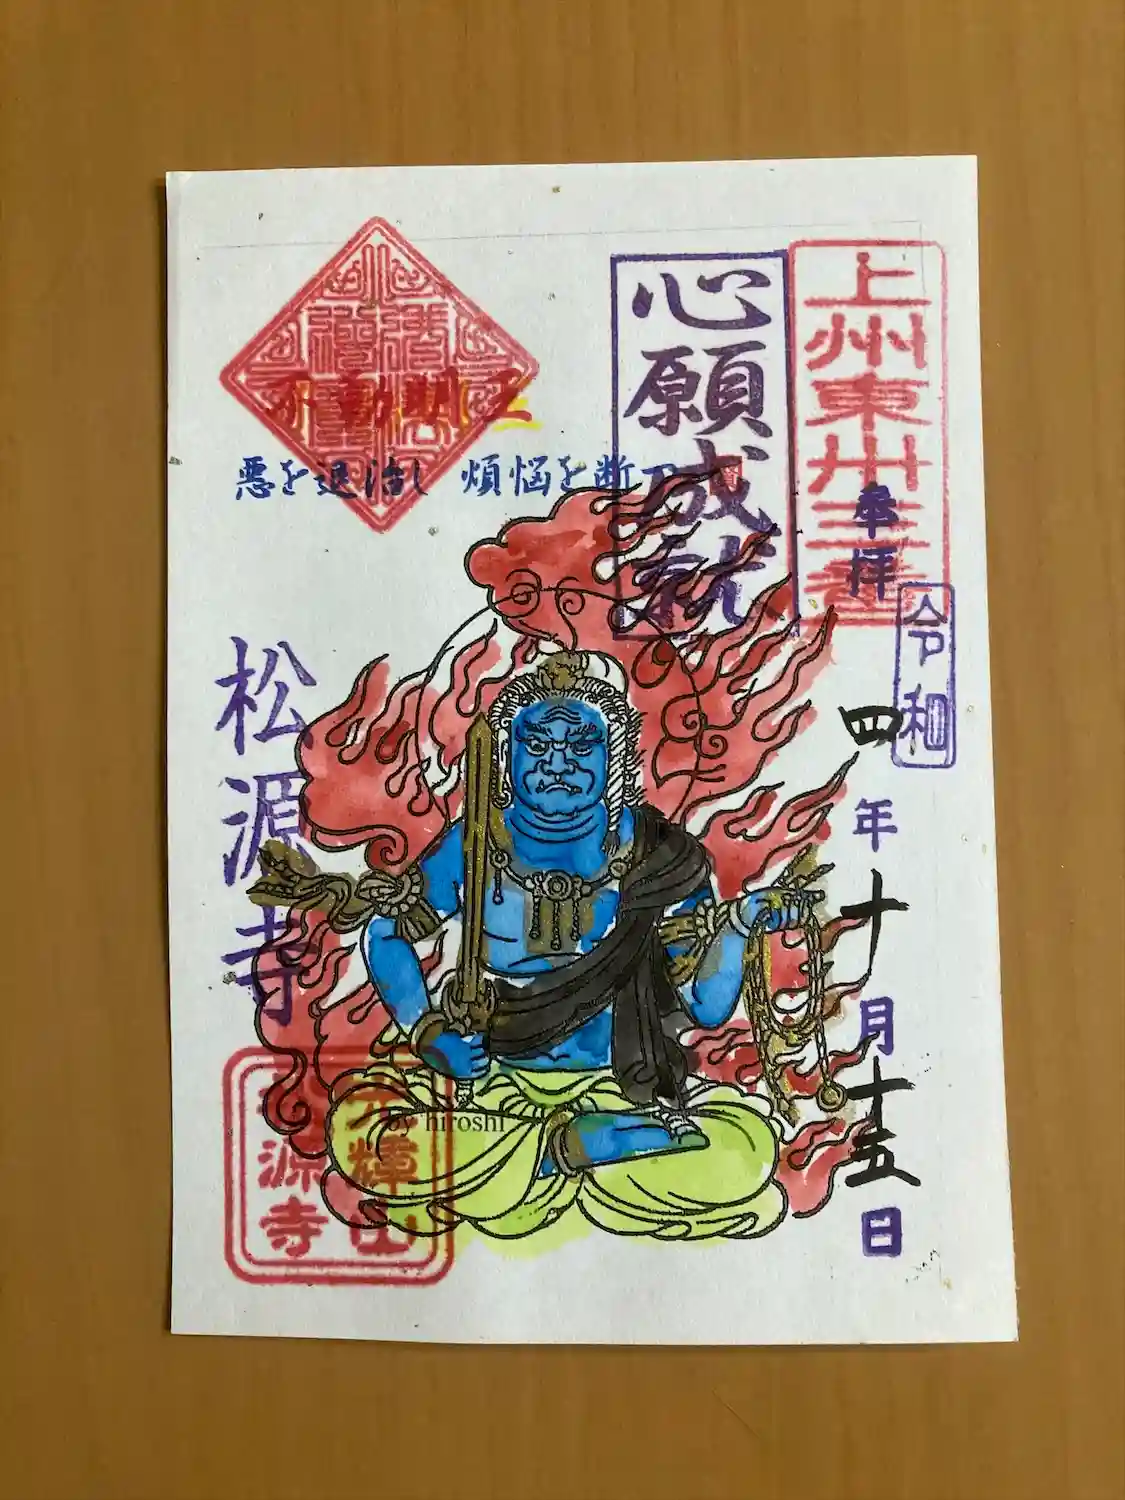 上州東卅三番
奉拝
令和
四年十月十五日
心願成就
不動明王
悪を退治し 煩悩を断つ
松源寺
源寺
輝山
by hiroshi